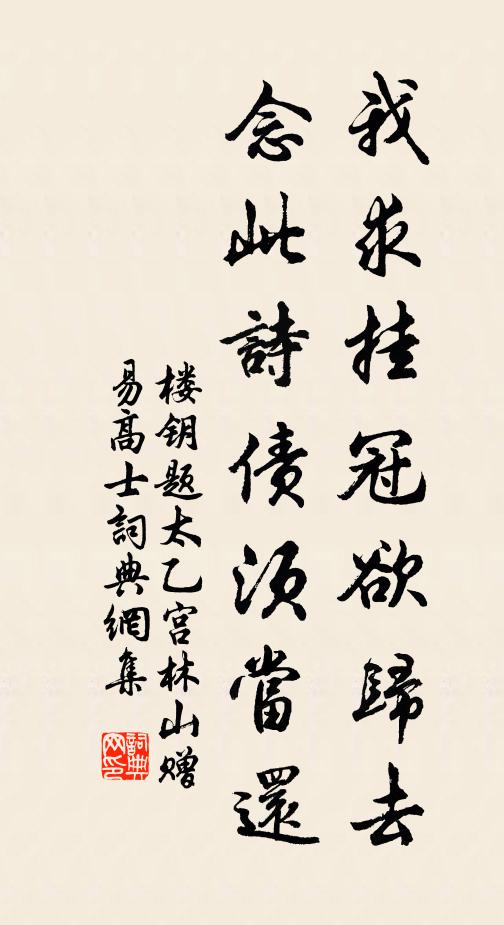 我求挂冠欲歸去
念此詩債須當還
楼钥题太乙宫林山赠
易高士詞典網集
詞典
网印